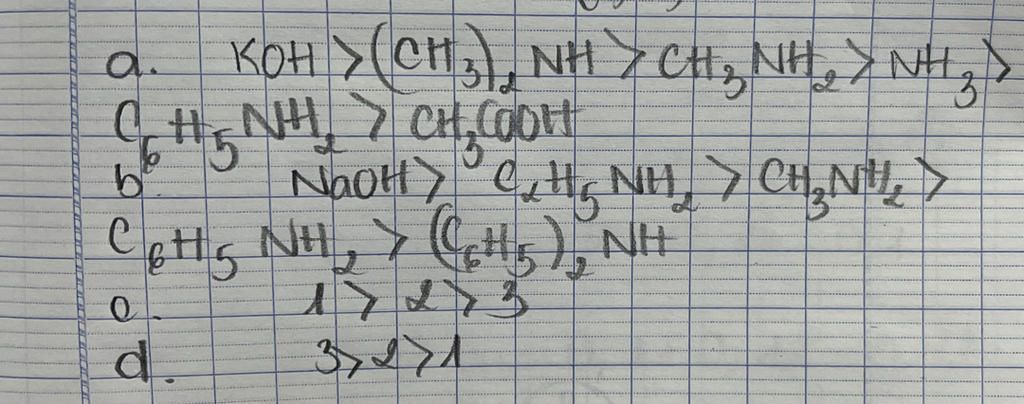 a. KOH > (CH₃)₂NH > CH₃NH₂ > NH₃ >
C₆H₅NH₂ > CH₃COOH
b. NaOH > C₂H₅NH₂ > CH₃NH₂ >
C₆H₅NH₂ > (C₆H₅)₂NH
c. 1 > 2 > 3
d. 3 > 2 > 1